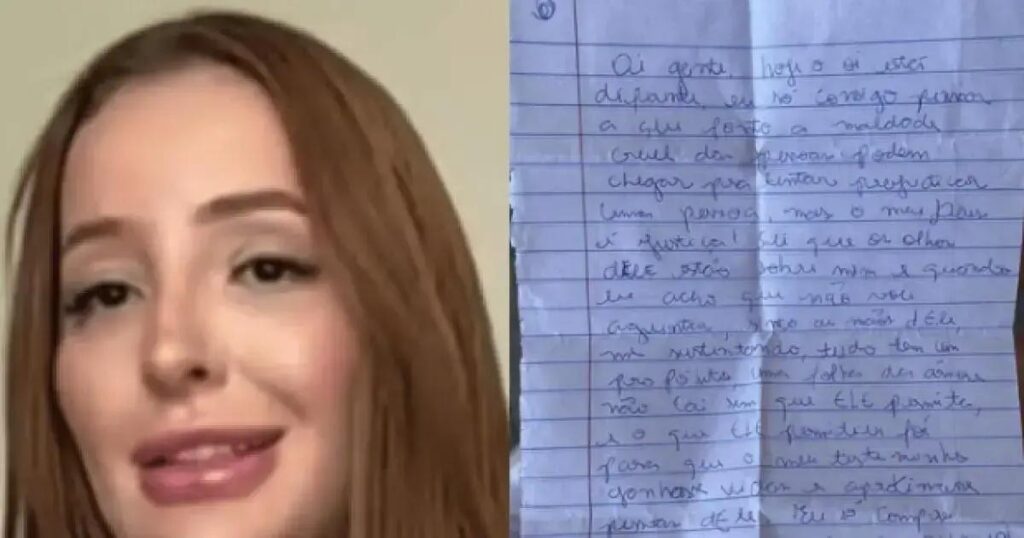 Oi gente, hoje o oi está
diferente, eu só consigo pensar
a que ponto a maldade
cruel das pessoas podem
chegar pra tentar prejudicar
uma pessoa, mas o meu Deus
é justiça! Sei que os olhos
dELE estão sobre mim e quando
eu acho que não vou
aguentar, sinto as mãos dEle,
me sustentando, tudo tem um
propósito, uma folha da árvore
não cai sem que ELE permita,
e o que ELE permitiu foi
para que o meu testemunho
ganhasse vidas e aproximasse
pessoas dELE. Eu só